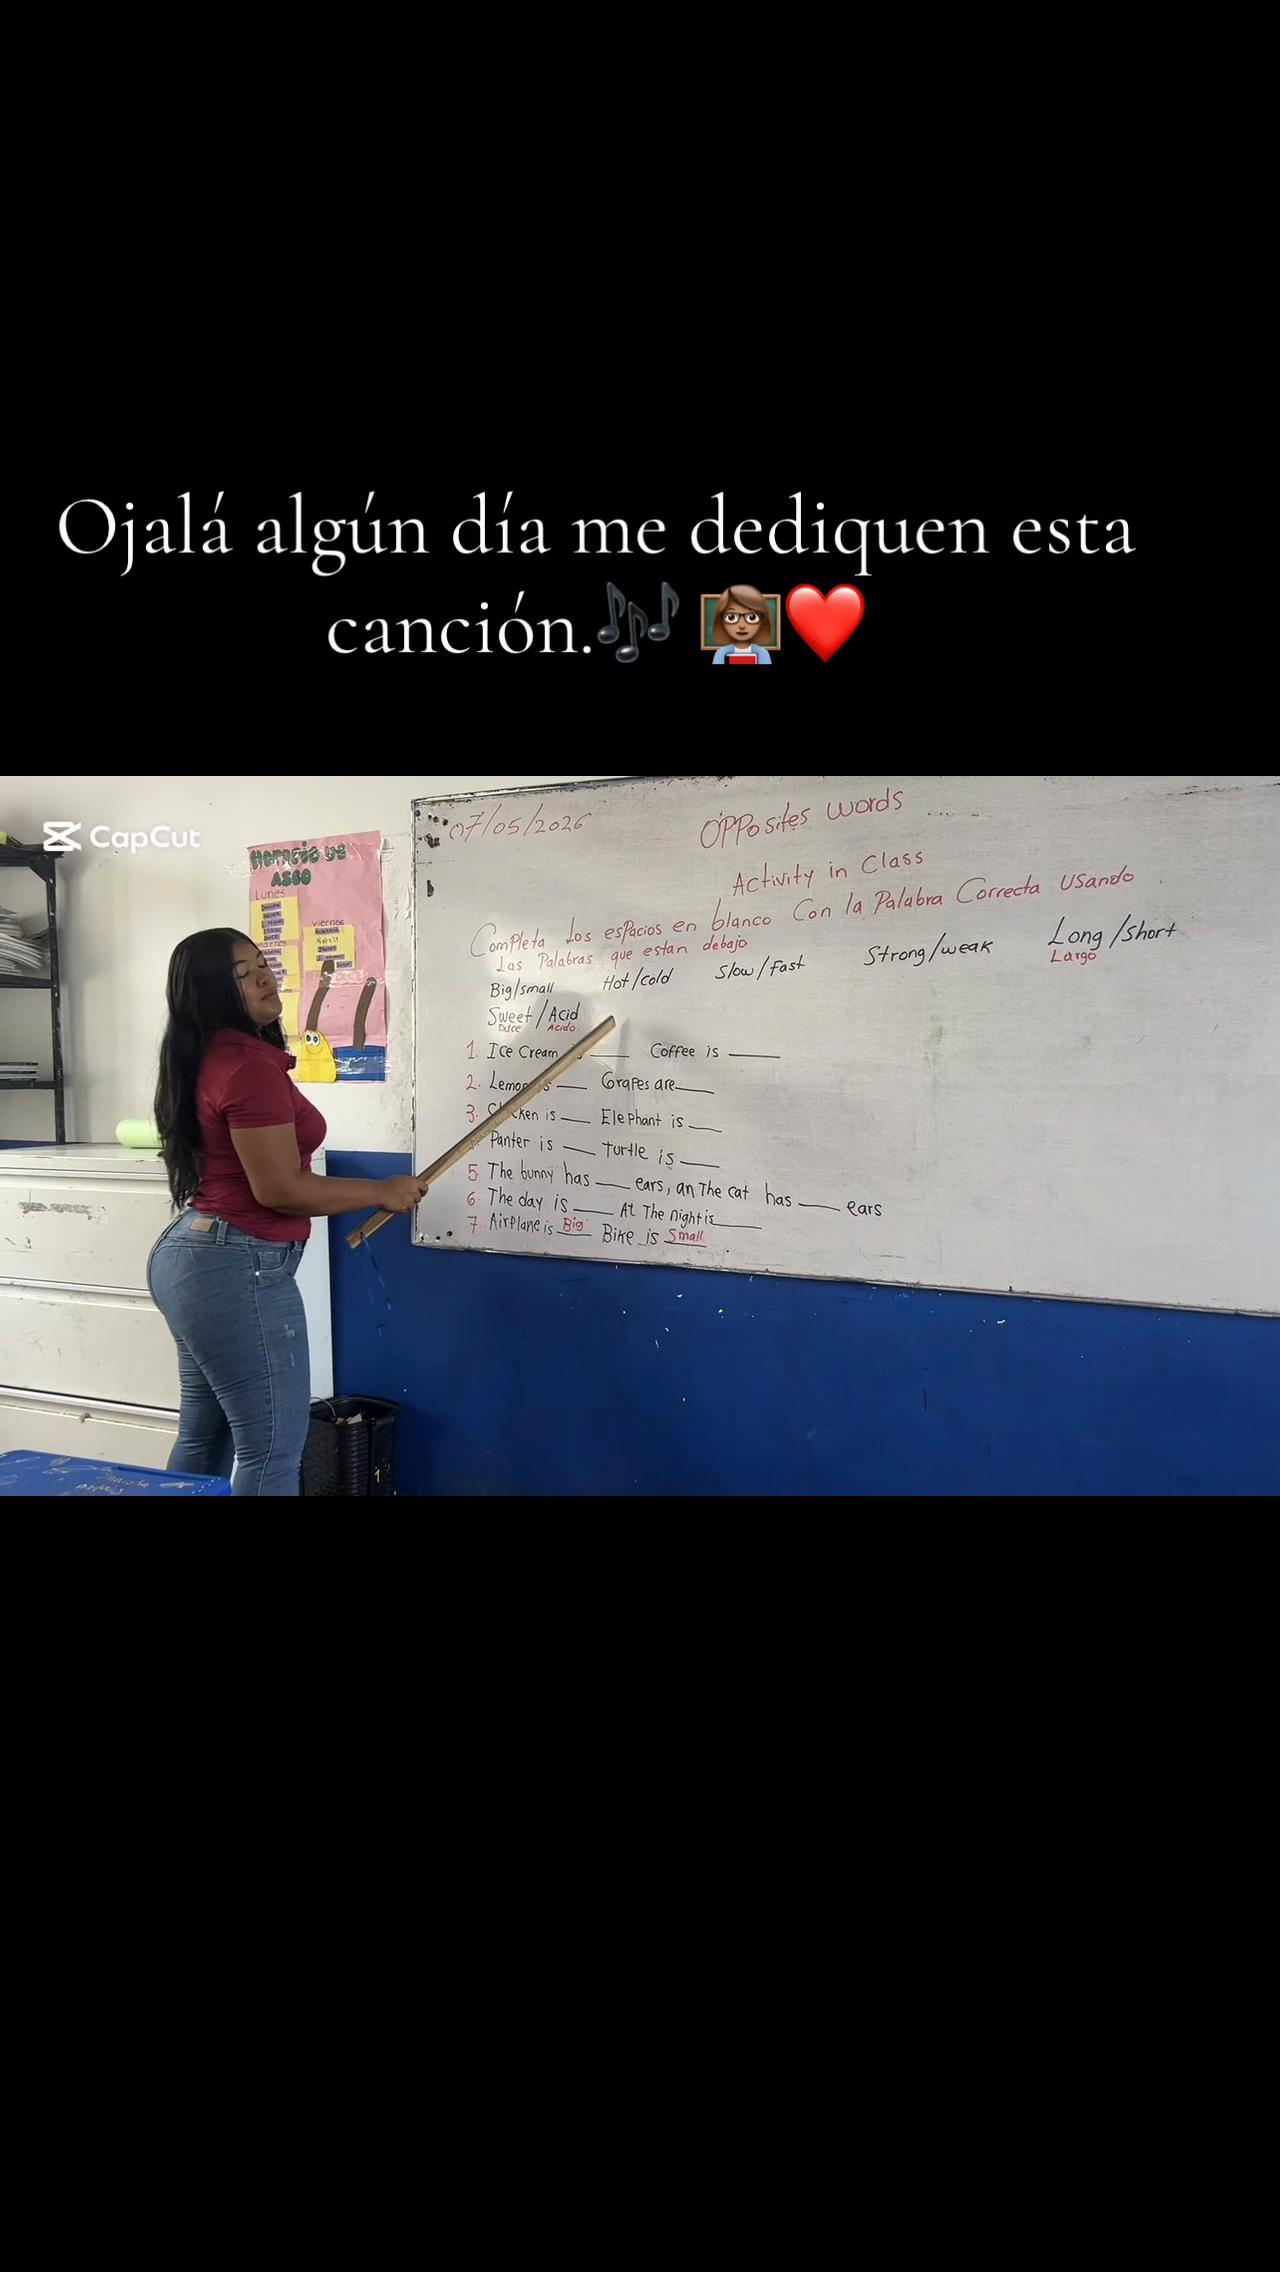 Ojalá algún día me dediquen esta
canción.🎶 👩🏽‍🏫❤️
CapCut
07/05/2026
Opposites words
Activity in Class
Completa los espacios en blanco Con la Palabra Correcta usando
Las Palabras que estan debajo
Big/small Hot/cold Slow/Fast Strong/weak Long/Short
Largo
Sweet/Acid
Dulce Acido
1. Ice Cream is ____ Coffee is ____
2. Lemon is ____ Grapes are ____
3. Chicken is ____ Elephant is ____
Panter is ____ Turtle is ____
5 The bunny has ____ ears, an The cat has ____ ears
6. The day is ____ At The night is ____
7. Airplane is Big Bike is Small
Horario de
ASEO
Lunes
viernes
Martes